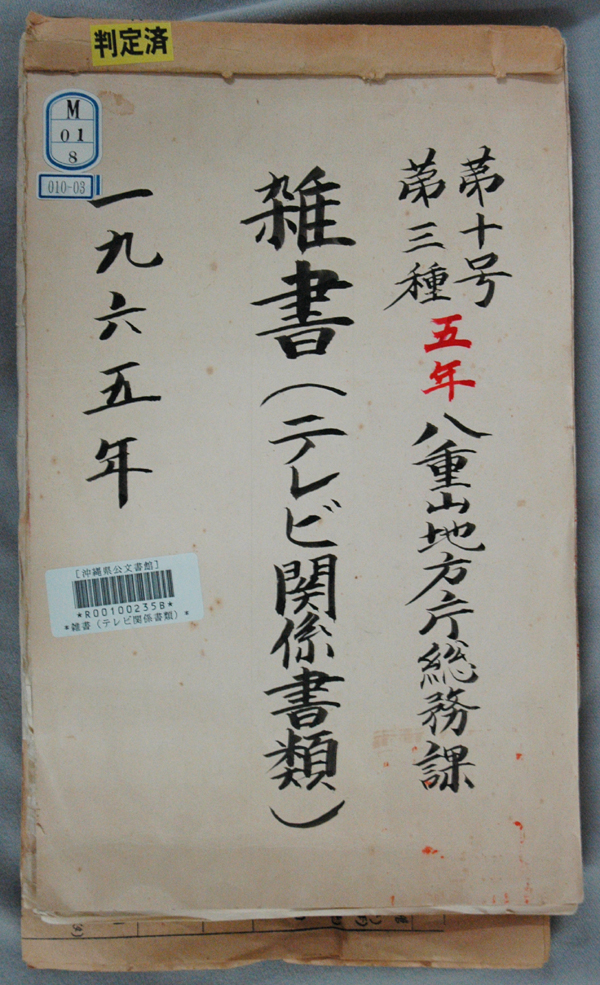 判定済
M
01
8
010-03
第十号
第三種 五年 八重山地方庁総務課
雑書（テレビ関係書類）
一九六五年
[沖縄県公文書館]
*R00100235B*
*雑書（テレビ関係書類）*